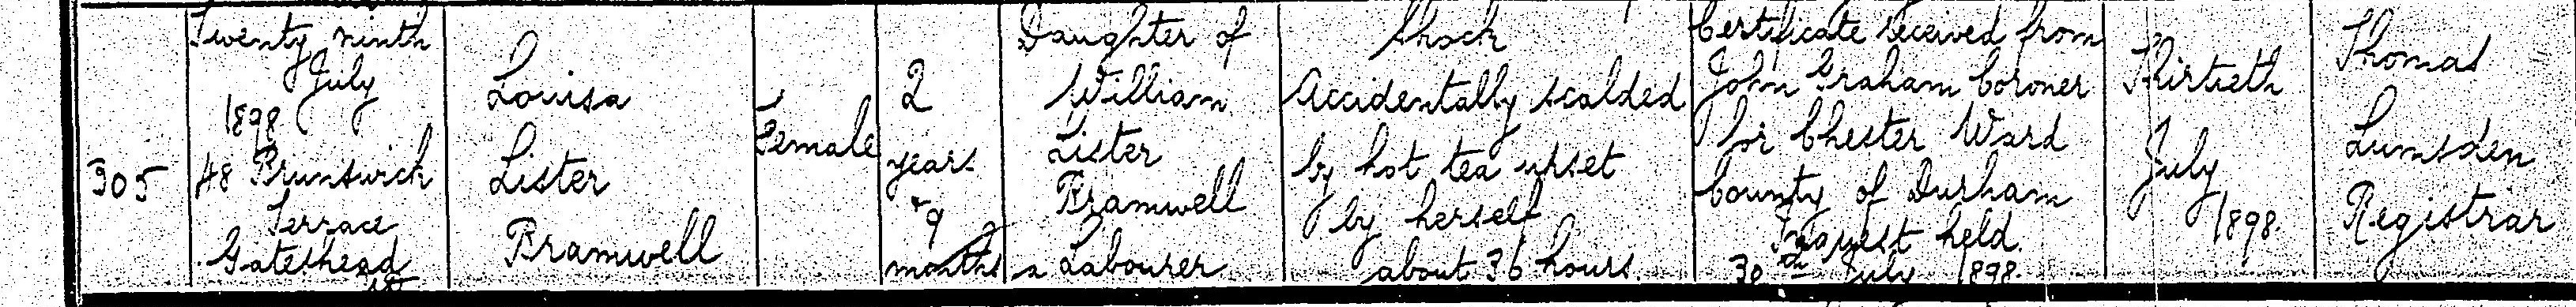 305
Twenty ninth
July
1898
48 Brunswick
Terrace
Gateshead
Louisa
Lister
Bramwell
Female
2
years
+ 9
months
Daughter of
William
Lister
Bramwell
a Labourer
Shock
Accidentally scalded
by hot tea upset
by herself
about 36 hours
Certificate received from
John Graham Coroner
for Chester Ward
County of Durham
Inquest held
30th July 1898.
Thirtieth
July
1898.
Thomas
Lumsden
Registrar